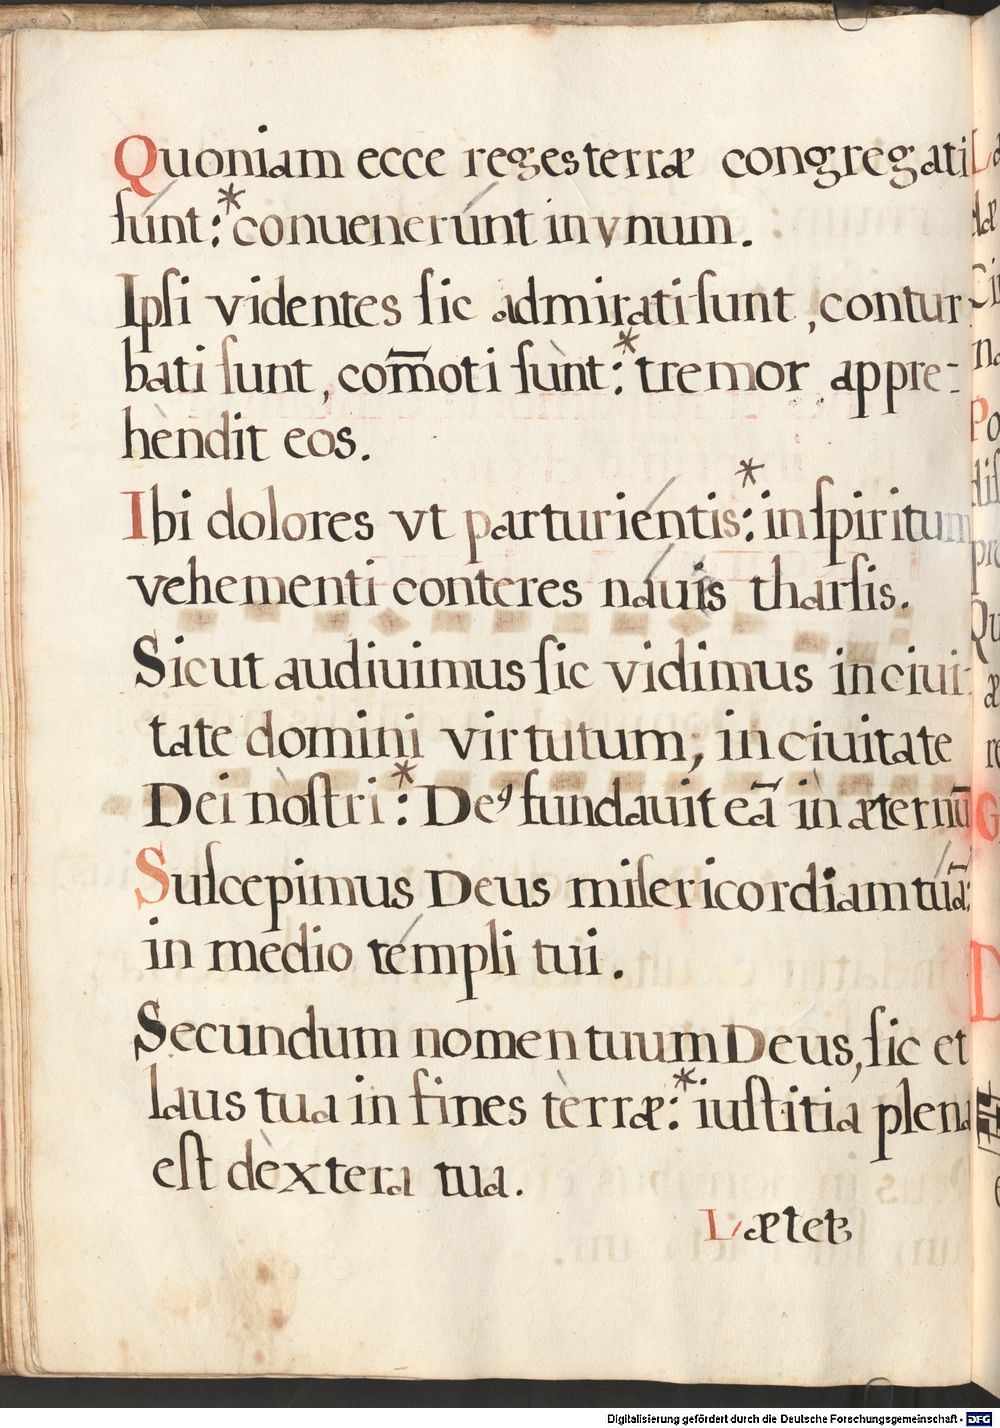 Quoniam ecce reges terræ congregati
ſúnt:* conuenerúnt in vnum.
Ipſi videntes ſic admirati ſunt, contur
bati ſunt, com̄oti ſùnt:* tremor appre-
hèndit eos.
Ibi dolores vt parturiéntis:* in ſpiritum
vehementi conteres náuis tharſis.
Sicut audiuimus ſic vidimus in ciui-
tate domini virtutum, in ciuitate
Dei nòſtri:* Deꝰ fundauit eā in æternū
Suſcepimus Deus miſericordiam túā:
in medio témpli tui.
Secundum nomen tuum Deus, ſic et
laus tua in fines tèrræ:* iuſtitia plena
eſt dèxtera tua.
Lætetꝫ
Digitalisierung gefördert durch die Deutsche Forschungsgemeinschaft - DFG